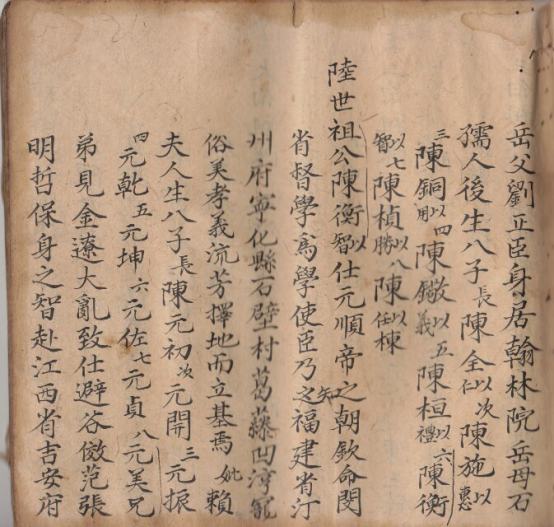 岳父劉正臣身居翰林院岳母石
孺人後生八子長陳全以仁次陳施以惠
三陳銅以用四陳鐓以義五陳桓以禮六陳衡
以智七陳楨以勝八陳棟以任
陸世祖公陳衡以智仕元順帝之朝欽命閩
省督學為學使臣乃知之福建省汀
州府寧化縣石壁村葛藤凹淳龐
俗美孝義流芳擇地而立基焉妣賴
夫人生八子長陳元初次元開三元振
四元乾五元坤六元佐七元貞八元美兄
弟見金遼大亂致仕避谷傚范張
明哲保身之智赴江西省吉安府